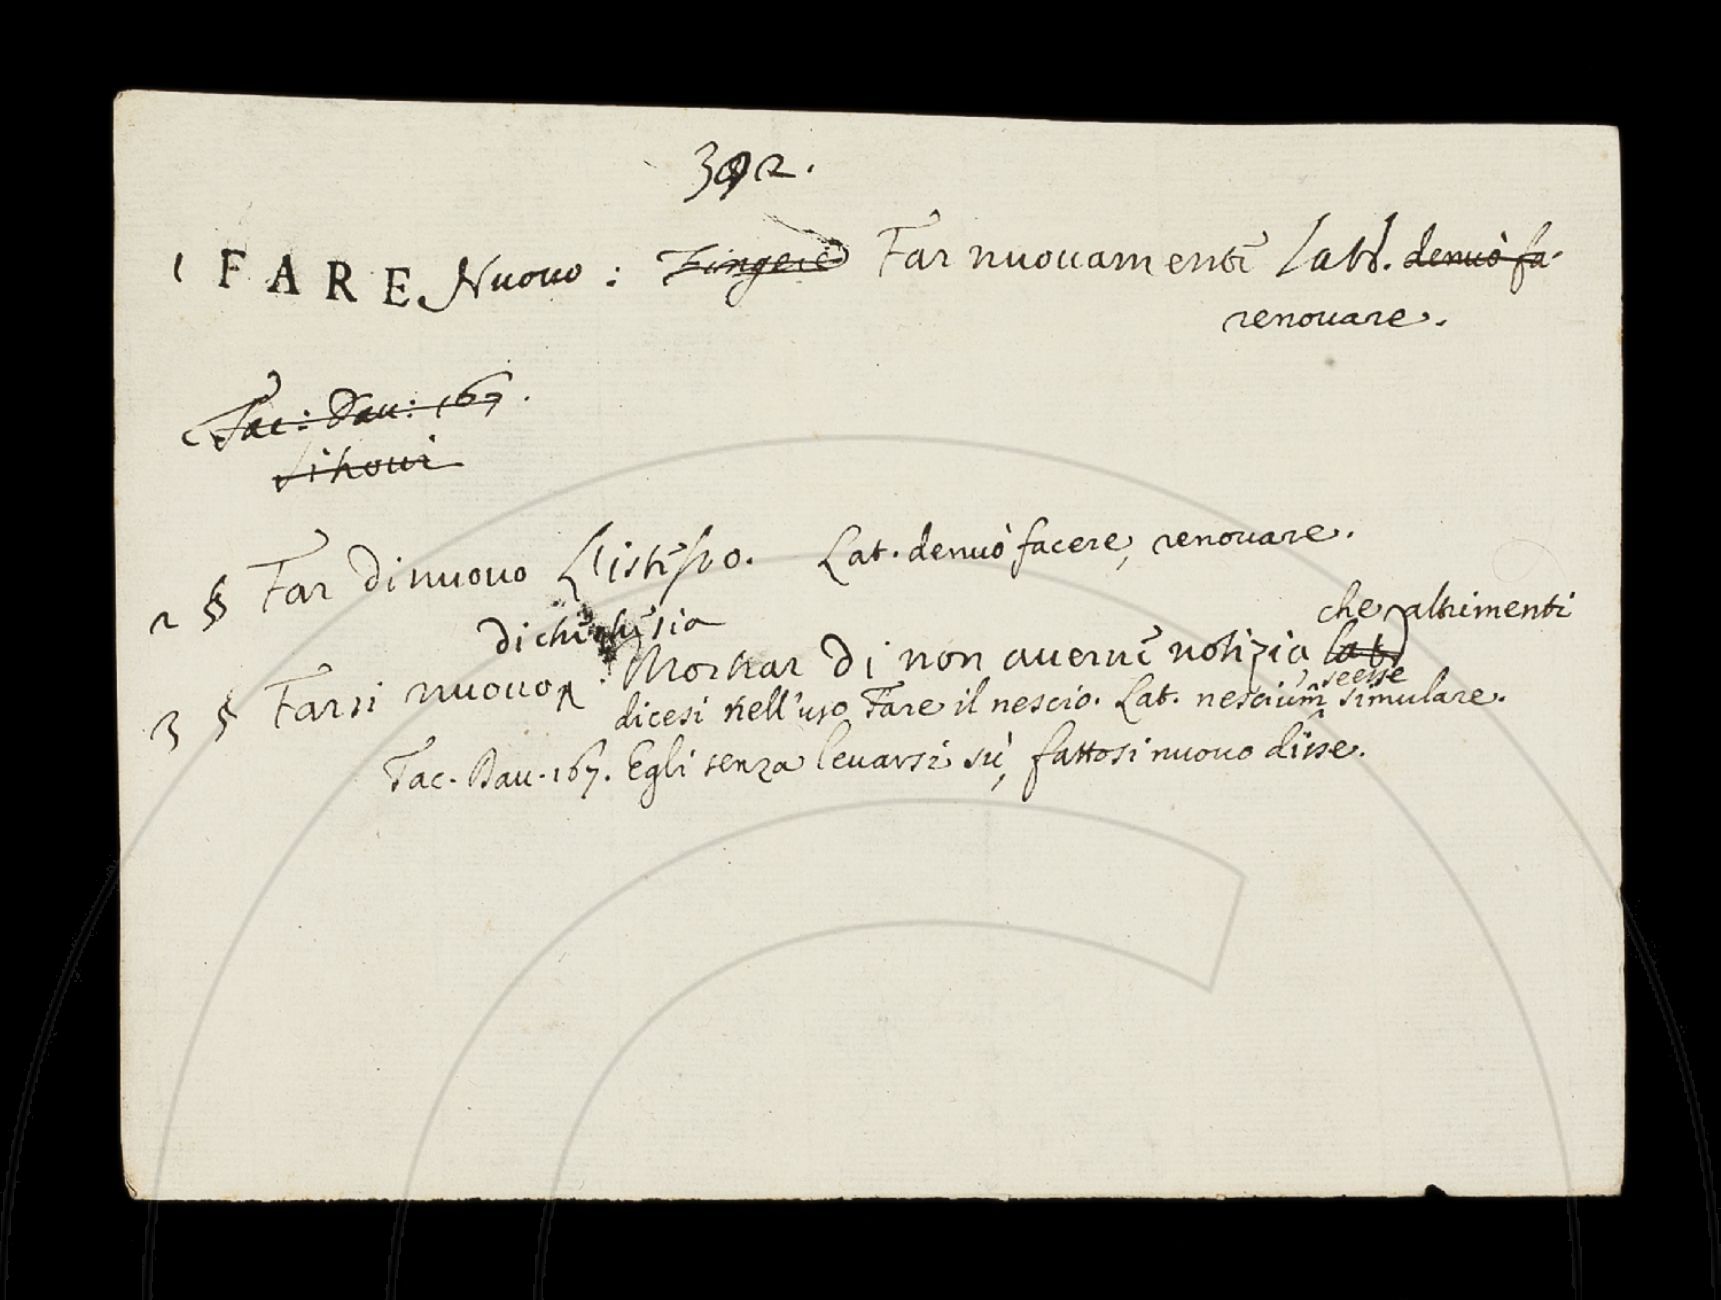 392.
1 FARE Nuouo : ~~Fingere~~ Far nuouamente Lat. ~~denuò fa-~~
renouare.
~~Tac: Dau: 167.~~
2 § Far di nuouo L'istesso. Lat. denuò facere, renouare.
di chi che sia
che altrimenti
3 § Farsi nuouo : Mostrar di non auerne notizia ~~lat~~
se esse
dicesi nell'uso Fare il nescio. Lat. nescium simulare.
Tac. Dau. 167. Egli senza leuarsi sù, fattosi nuouo disse.